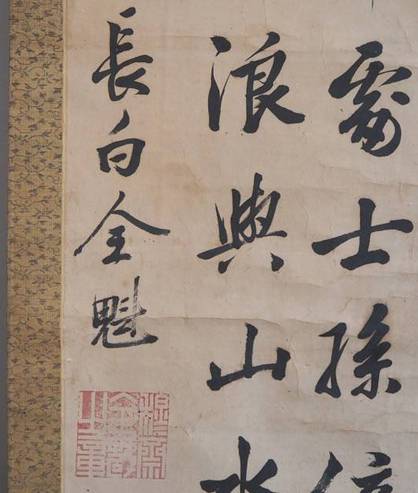 處士孫位
浪與山水
長白全魁